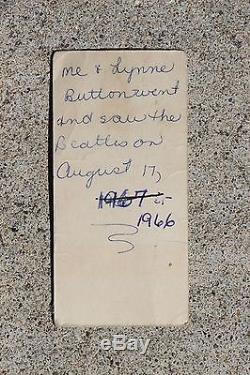 me & Lynne
Button went
and saw the
Beatles on
August 17,
1967
1966